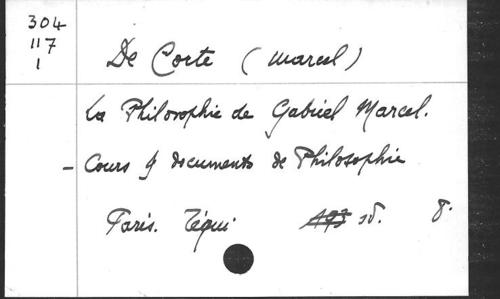 304
117
1
De Corte (Marcel)
La Philosophie de Gabriel Marcel.
- Cours & documents de Philosophie
Paris. Téqui sd. 8.